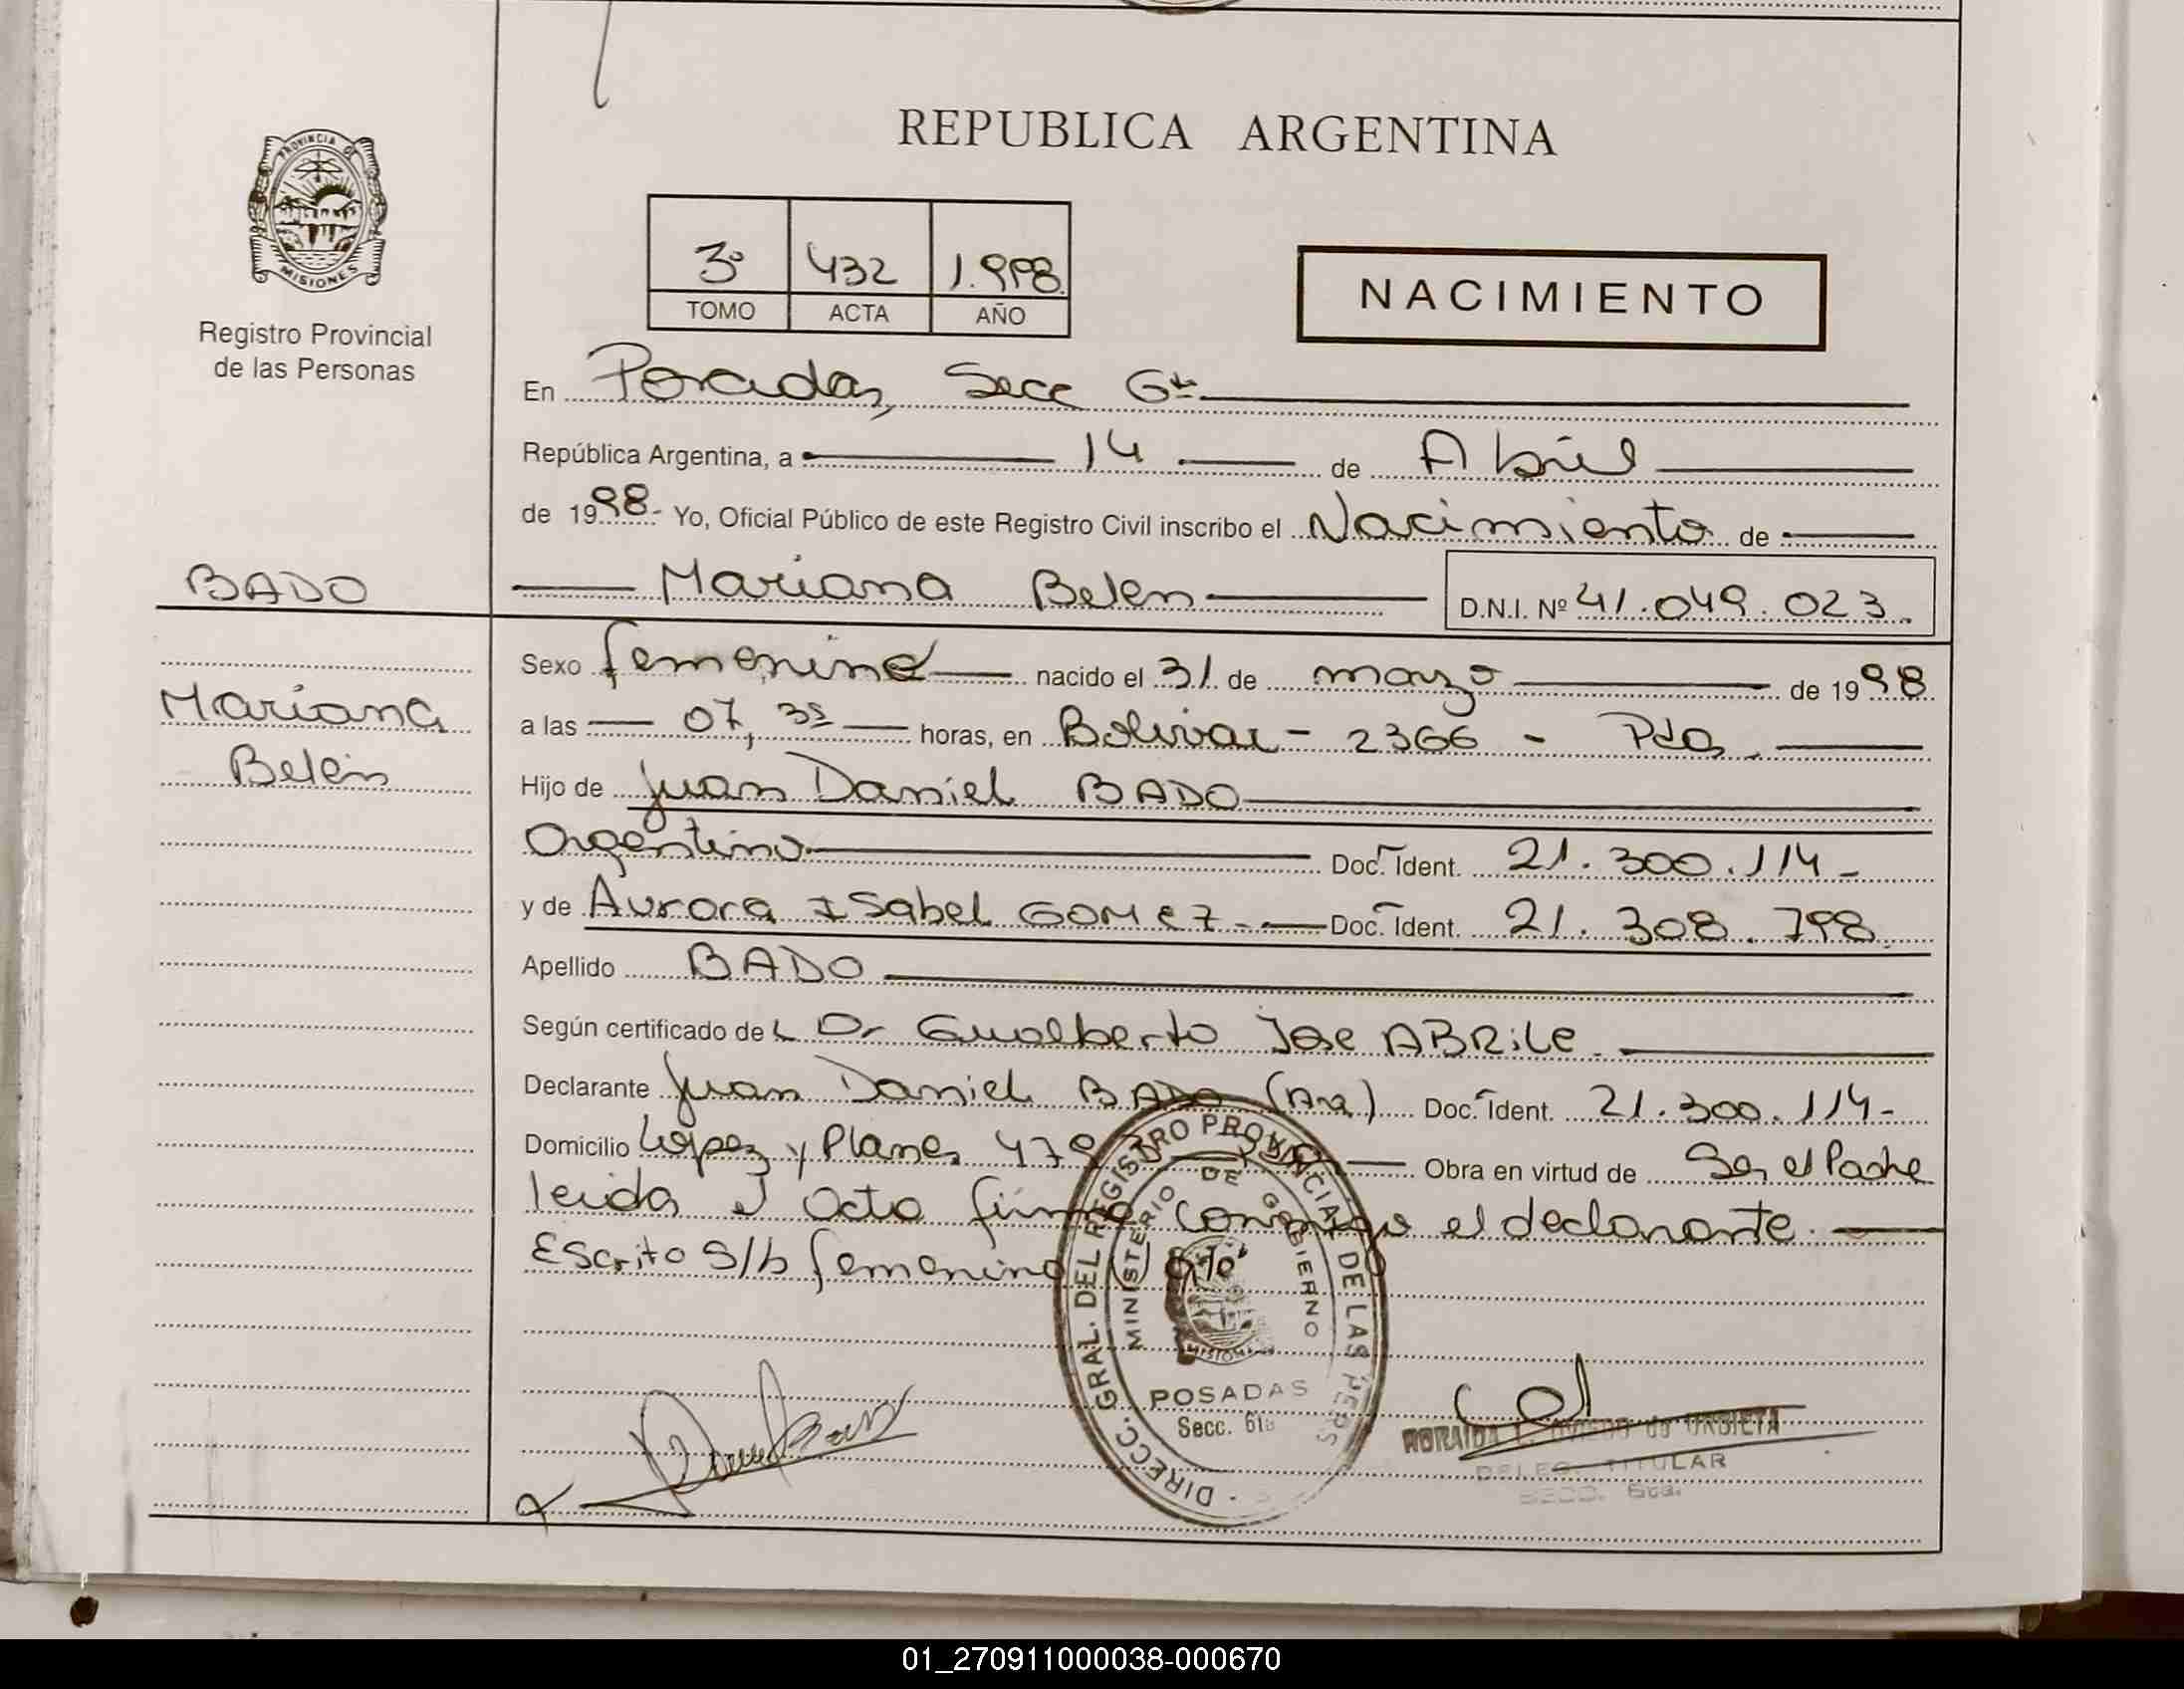 REPUBLICA ARGENTINA
PROVINCIA DE
MISIONES
Registro Provincial
de las Personas
3º 432 1.998.
TOMO ACTA AÑO
NACIMIENTO
En Posadas, Secc 6ta
República Argentina, a 14 de Abril
de 1998- Yo, Oficial Público de este Registro Civil inscribo el Nacimiento de
BADO
Mariana Belen D.N.I. Nº 41.049.023.
Mariana
Belén
Sexo femenino nacido el 31 de marzo de 1998
a las 07,35 horas, en Bolivar - 2366 - Pdas.
Hijo de Juan Daniel BADO
Argentino Doc. Ident. 21.300.114-
y de Aurora Isabel GOMEZ- Doc. Ident. 21.308.798.
Apellido BADO
Según certificado del Dr Gualberto Jose ABRILE.
Declarante Juan Daniel BADO (Arg) Doc. Ident. 21.300.114-
Domicilio Lopez y Planes Obra en virtud de Ser el Padre
leida el Acta firma conmigo el declarante.
Escrito S/b femenino
DIRECC. GRAL. DEL REGISTRO PROVINCIAL DE LAS PERS
MINISTERIO DE GOBIERNO
MISIONES
POSADAS
Secc. 6ta
de URBIETA
DELEG. TITULAR
SECC. 6ta.
01_270911000038-000670